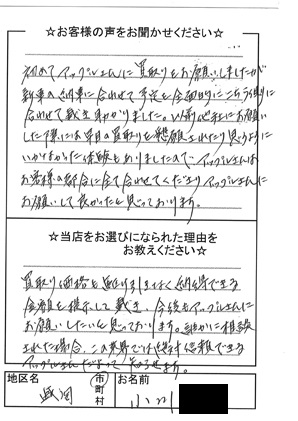 ☆お客様の声をお聞かせください☆
初めてアップルさんに買取りをお願いしましたが
新車の納車に合わせて予定を全面的にこちら側に
合わせて戴き助かりました。以前他社にお願い
した際にはお目の買取りを懇願されたり思うように
いかなかった体験もありましたので、アップルさんは
お客様の都合に全て合わせてくださりアップルさんに
お願いして良かったと思っております。
☆当店をお選びになられた理由を
お教えください☆
買取り価格も納得できる
金額を提示して戴き、今後もアップルさんに
お願いしたいと思っております。誰かに相談
された場合、この業界では絶対信頼できる
アップルさんだよって
地区名
市
町
村
お名前
小川